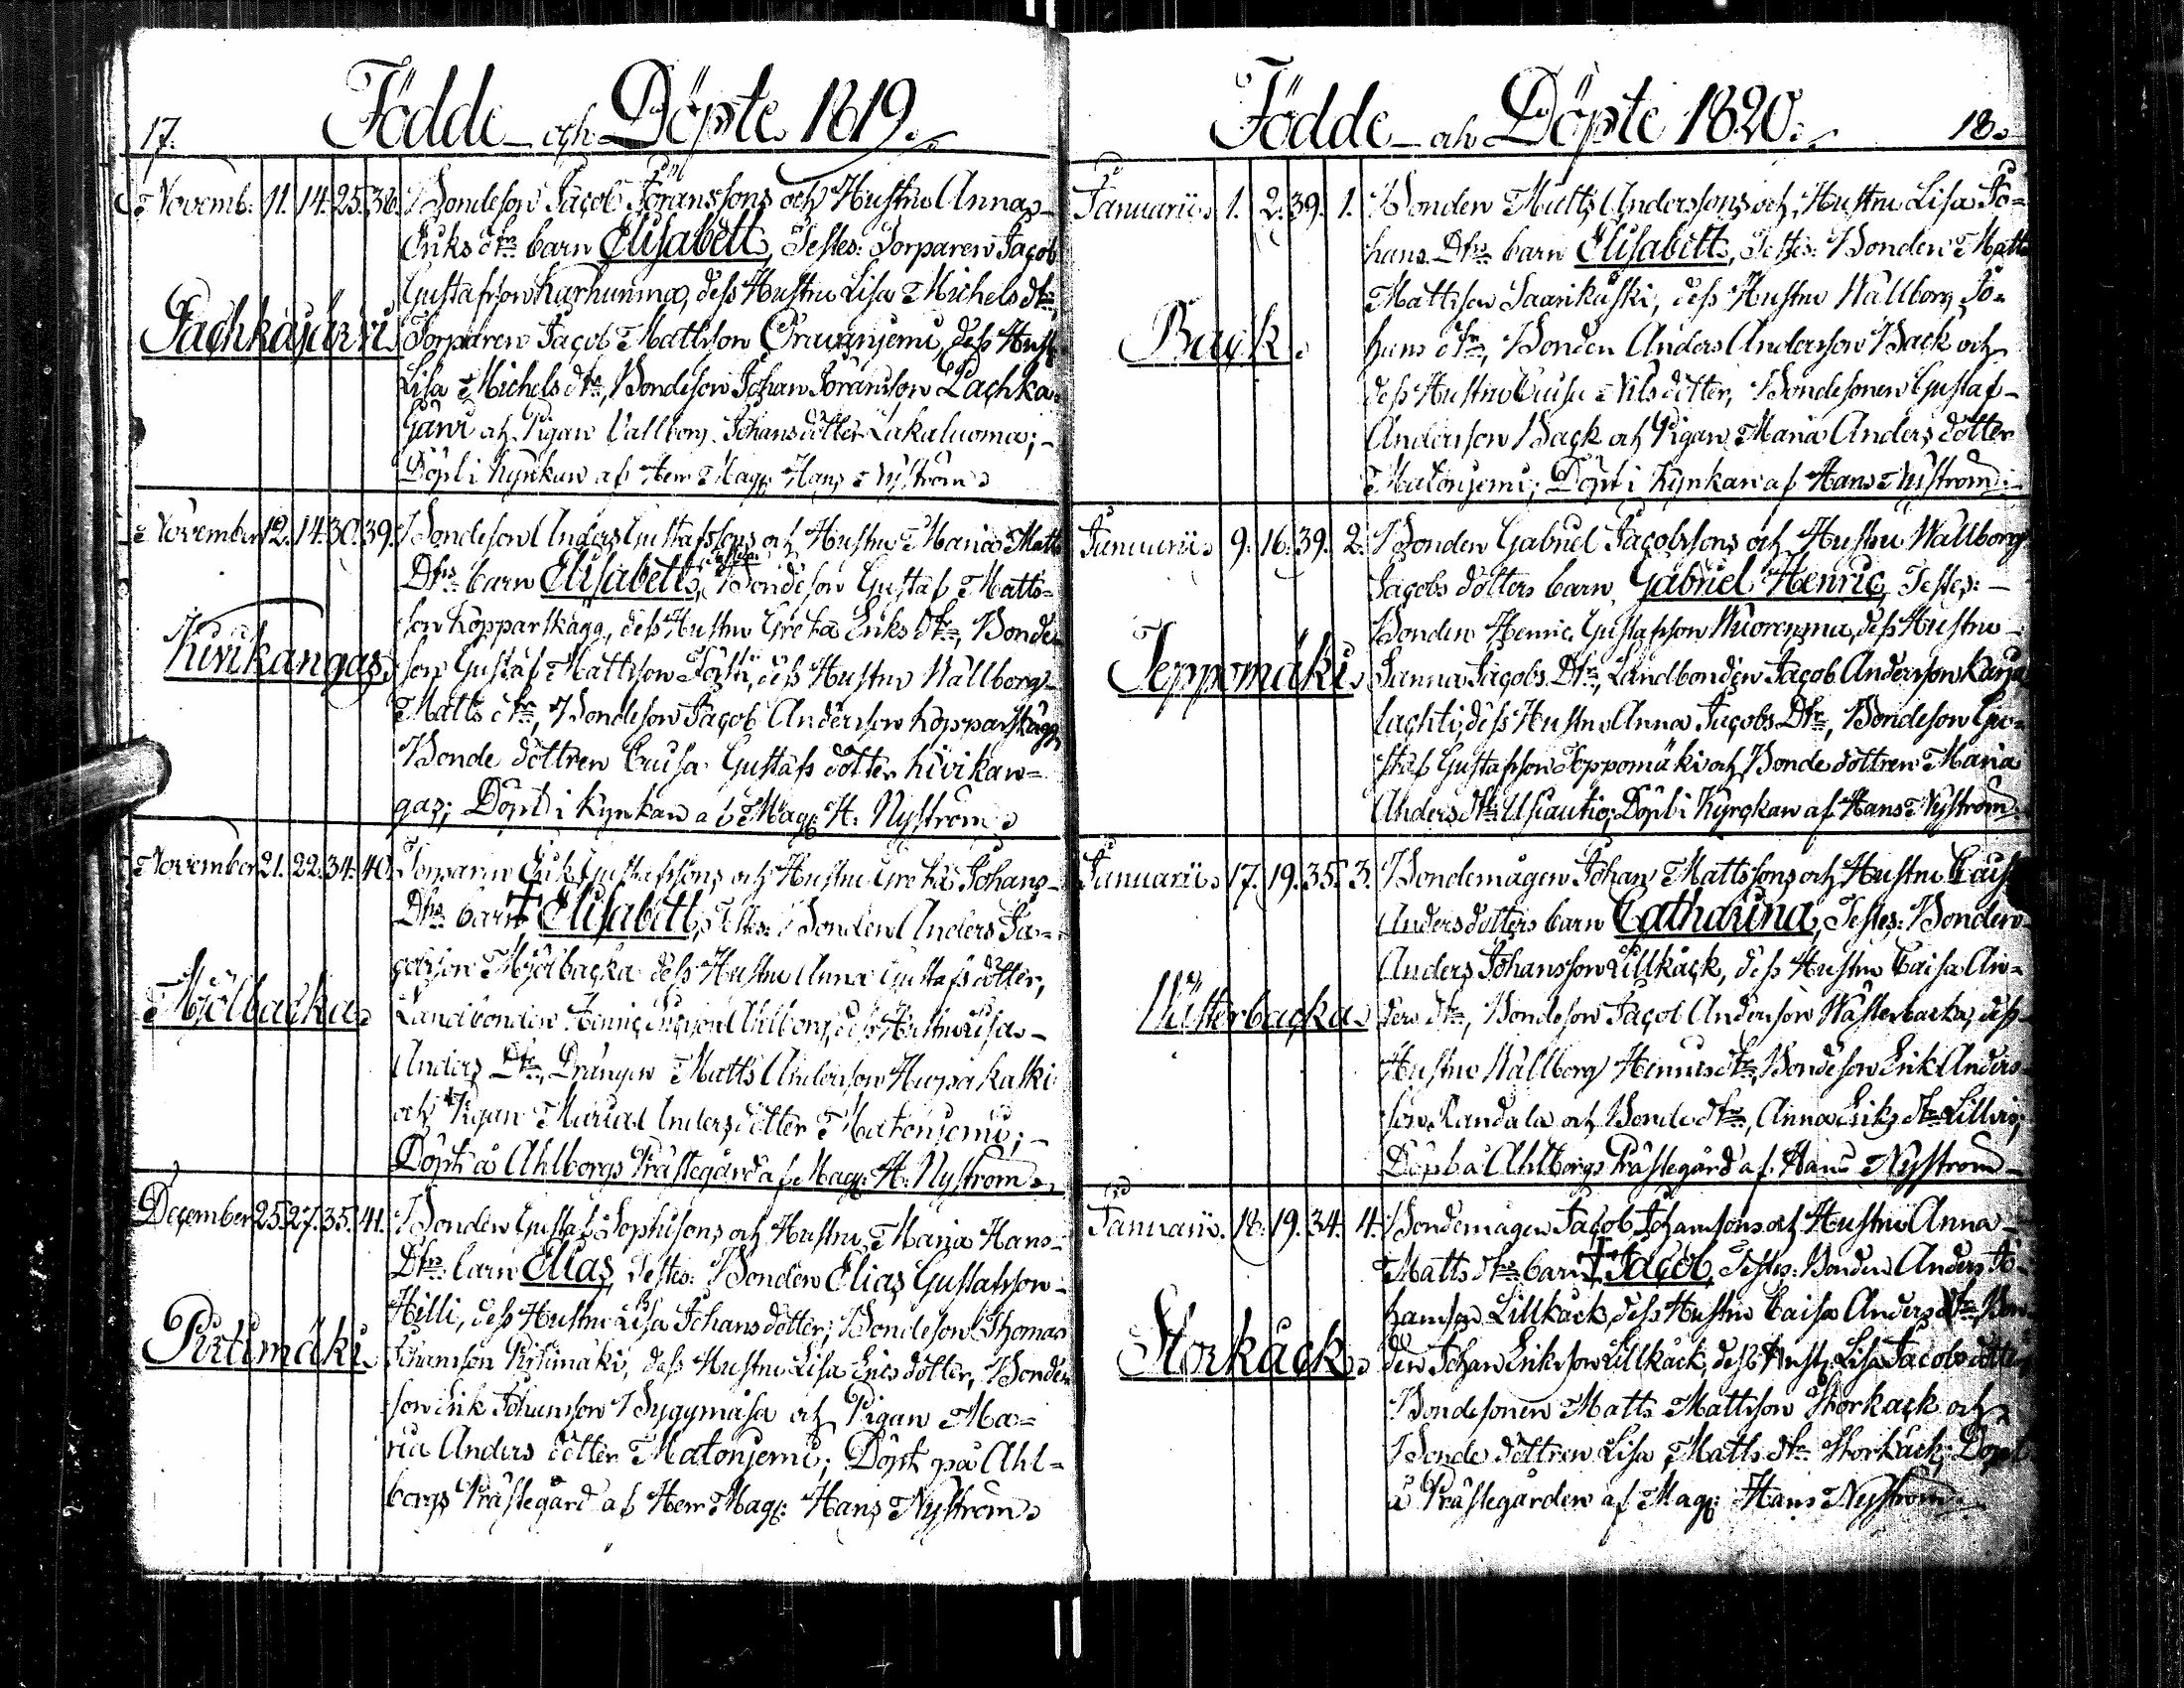 17.
Födde och Döpte 1819.
Novemb. 11. 14. 25. 38. Bondeson Jacob Göranssons och Hustru Anna
Eriks dtrs barn Elisabett, Testes: Torparen Jacob
Gustafsson Karhunma, dess Hustru Lisa Michels dtr,
Lachkajärvi Torparen Jacob Mattsson Oravanjemi, dess Hust.
Lisa Michels dtr, Bondeson Johan Göransson Lachka-
järvi och Pigan Vallborg Johansdotter Kakaluoma;
Döpt i Kyrkan af Herr Mag: Hans Nyström
November 12. 14. 30. 39. Bondeson Anders Gustafssons och Hustru Maria Matts
Dtrs barn Elisabett, Testes: Bondeson Gustaf Matts-
son Kopparskägg, dess Hustru Greta Eriks Dtr, Bonde
Kivikangas son Gustaf Mattsson Pösti, dess Hustru Wallborg
Matts dtr, Bondeson Jacob Andersson Kopparskägg,
Bonde dottren Caisa Gustafs dotter Kivikan-
gas; Döpt i Kyrkan af Mag: H. Nyström
November 21. 22. 34. 40. Torparen Erik Gustafssons och Hustru Greta Johans
Dtrs barn † Elisabett, Testes: Bonden Anders Ja-
cobsson Mjölbacka dess Hustru Anna Gustafs dotter,
Mjölbacka Landbonden Henric Ahlborg, dess Hustru Lisa
Anders Dtr, Drängen Matts Andersson Harjakaski
och Pigan Maria Anders dotter Matonjemi;
Döpt å Ahlborgs Prästegård af Mag: H. Nyström
December 25. 27. 35. 41. Bonden Gustaf Sophiesons och Hustru Maria Hans
Dtrs barn Elias, Testes: Bonden Elias Gustafsson
Hilli, dess Hustru Lisa Johans dotter, Bondeson Thomas
Pirtimäki Johansson Pirtimäki, dess Hustru Lisa Erics dotter, Bonde
son Erik Johansson Sygymäsa och Pigan Ma-
ria Anders dotter Matonjemi; Döpt på Ahl-
borgs Prästegård af Herr Mag: Hans Nyström
Födde och Döpte 1820.
18.
Januarii 1. 2. 39. 1. Bonden Matts Anderssons och Hustru Lisa Jo-
hans Dtrs barn Elisabett, Testes: Bonden Matts
Mattsson Saarikoski, dess Hustru Wallborg Jo-
Back hans dtr, Bonden Anders Andersson Back och
dess Hustru Caisa Nils dotter, Bondesonen Gustaf
Andersson Back och Pigan Maria Anders dotter
Matonjemi; Döpt i Kyrkan af Hans Nyström
Januarii 9. 16. 39. 2. Bonden Gabriel Jacobssons och Hustru Wallborg
Jacobs dotters barn Gabriel Henric, Testes:
Bonden Henric Gustafsson Wuorenma, dess Hustru
Jeppomäki Sanna Jacobs Dtr, Landbonden Jacob Andersson Karja
lachti, dess Hustru Anna Jacobs Dtr, Bondeson Gu-
staf Gustafsson Jeppomäki och Bonde dottren Maria
Anders dtr Usiautio; Döpt i Kyrkan af Hans Nyström
Januarii 17. 19. 35. 3. Bondemågen Johan Mattssons och Hustru Caisa
Anders dotters barn Catharina, Testes: Bonden
Anders Johansson Lillkäck, dess Hustru Caisa An-
Wästerbacka ders dtr, Bondeson Jacob Andersson Wästerbacka, dess
Hustru Wallborg Henrics dtr, Bondeson Erik Anders-
son Randala och Bonde dtr, Anna Eriks dtr Lillvis;
Döpt å Ahlborgs Prästegård af Hans Nyström
Januarii. 18. 19. 34. 4. Bondemågen Jacob Johanssons och Hustru Anna
Matts dtrs barn † Jacob, Testes: Bonden Anders Jo-
hansson Lillkäck, dess Hustru Caisa Anders dtr, Bon-
Storkäck den Johan Eriksson Lillkäck, dess Hust. Lisa Jacobs dotter,
Bondesonen Matts Mattsson Storkäck och
Bonde dottren Lisa Matts dtr Storkäck; Döpt
å Prästegården af Mag: Hans Nyström